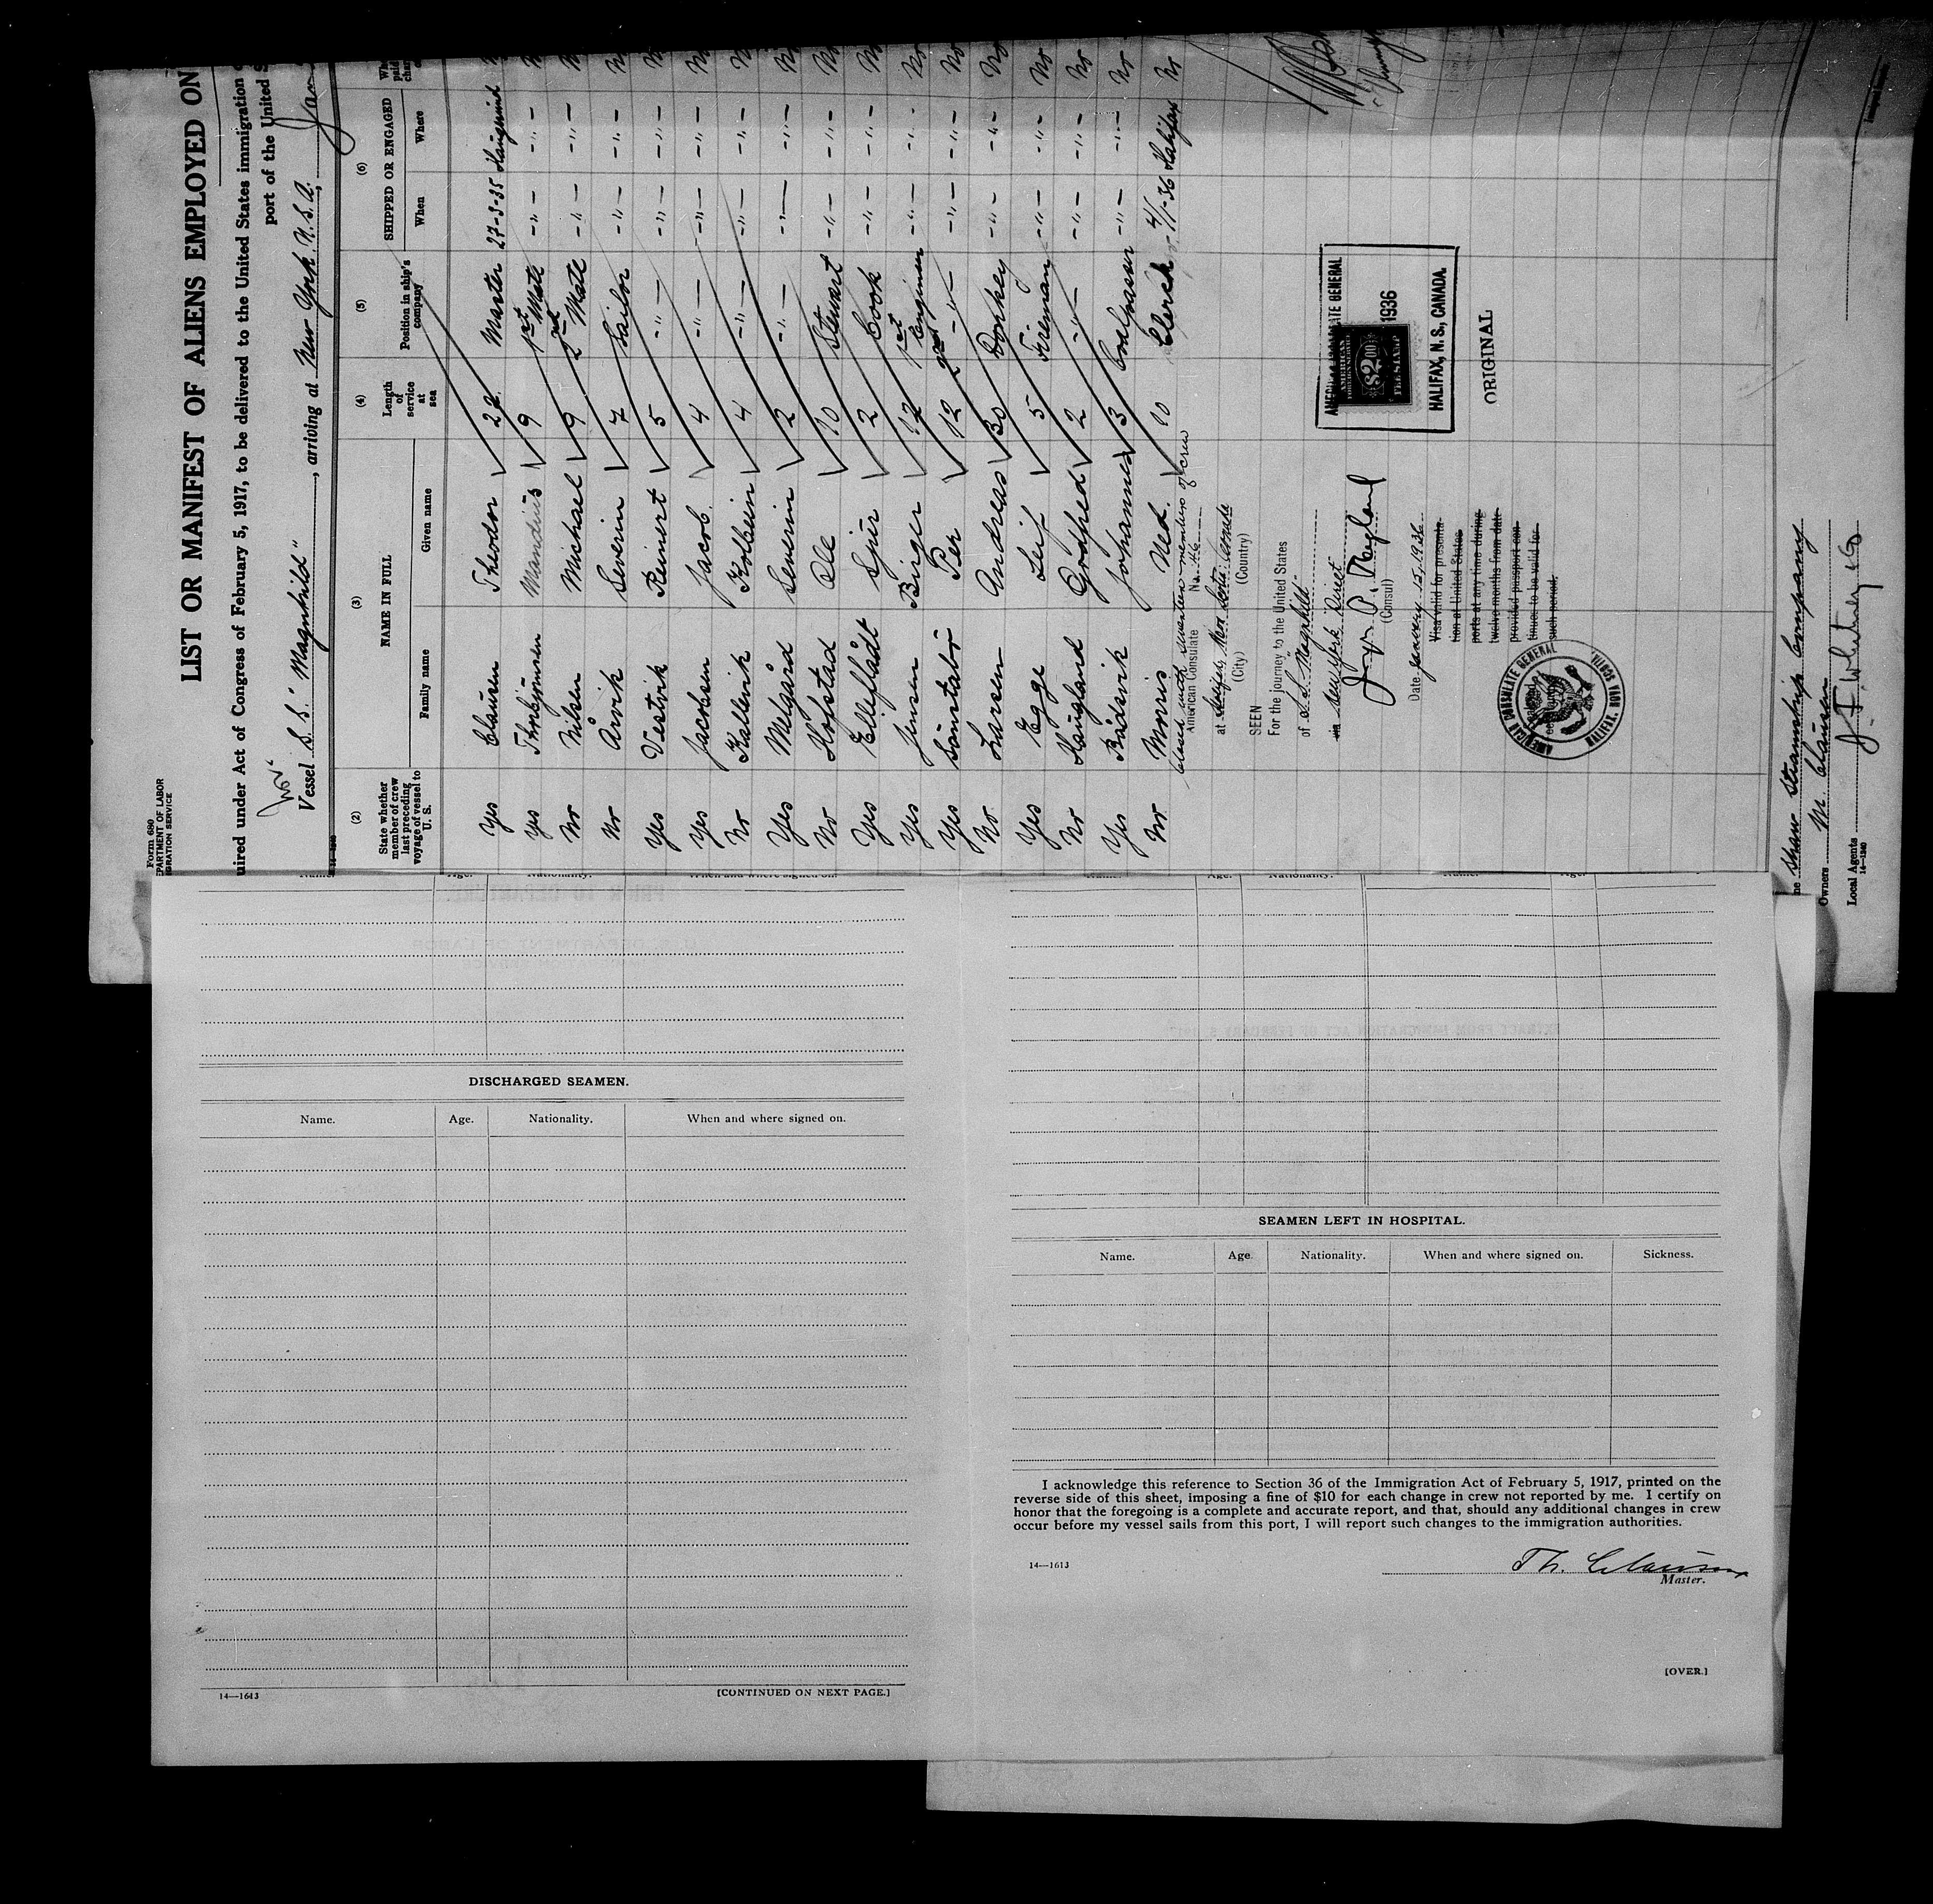 Form 680
LIST OR MANIFEST OF ALIENS EMPLOYED ON
uired under Act of Congress of February 5, 1917, to be delivered to the United States immigration
port of the United S
Vessel S.S. "Magnhild", arriving at New York. U.S.A.,
(2) (3) (4) (5) (6)
State whether member of crew last preceding voyage of vessel to U. S.
NAME IN FULL
Family name Given name
Length of service at sea
Position in ship's company
SHIPPED OR ENGAGED
When Where
Yes Clausen Theodor 22 Master 27-3-35
Yes Thorbjörnsen Mandius 9 1st Mate -"- -"- No
No Nilsen Michael 9 2nd Mate -"- -"- No
No Årvik Severin 7 Sailor -"- -"- No
Yes Vestvik Reinert 5 -"- -"- -"- No
Yes Jacobsen Jacob. 4 -"- -"- -"- No
No Kallevik Kolbein 4 -"- -"- -"- No
Yes Melgård Severin 2 -"- -"- -"- No
No Hofstad Ole 10 Stewart -"- -"- No
Yes Eilleflådt 2 Cook -"- -"- No
Yes Jensen Birger 12 1st Engineer -"- -"- No
Yes Per 12 2nd -"- -"- -"- No
No Larsen Andreas 30 Donkey -"- -"- No
Yes Egge Leif 5 Fireman -"- -"- No
No Haugland Godtfred 2 -"- -"- -"- No
Yes Rådsvik Johannes 3 Coalpasser -"- -"- No
No. Morris Ned. 10 Clerck 4/1-36 Halifax No
Closed with seventeen members of crew
American Consulate No. 46
at Halifax, Nova Scotia Canada
(City) (Country)
SEEN
For the journey to the United States
of S.S. "Magnhild"
via New York Direct
(Consul)
Date January 15, 1936
Visa valid for presenta-
tion at United States
ports at any time during
twelve months from date
provided passport con-
tinue to be valid for
such period.
AMERICAN CONSULATE GENERAL
HALIFAX, NOVA SCOTIA
AMERICAN CONSULATE GENERAL
AMERICAN
$2.00
FEE STAMP
1936
HALIFAX, N. S., CANADA.
ORIGINAL
ne Shaw Steamship Company
Owners M. Clausen
Local Agents J. T. Whitney & Co
14—1240
Name. Age. Nationality. When and where signed on.
DISCHARGED SEAMEN.
Name. Age. Nationality. When and where signed on.
14—1613
[CONTINUED ON NEXT PAGE.]
Name. Age. Nationality. Name. Age.
SEAMEN LEFT IN HOSPITAL.
Name. Age. Nationality. When and where signed on. Sickness.
I acknowledge this reference to Section 36 of the Immigration Act of February 5, 1917, printed on the
reverse side of this sheet, imposing a fine of $10 for each change in crew not reported by me. I certify on
honor that the foregoing is a complete and accurate report, and that, should any additional changes in crew
occur before my vessel sails from this port, I will report such changes to the immigration authorities.
14—1613
Th. Clausen
Master.
[OVER.]